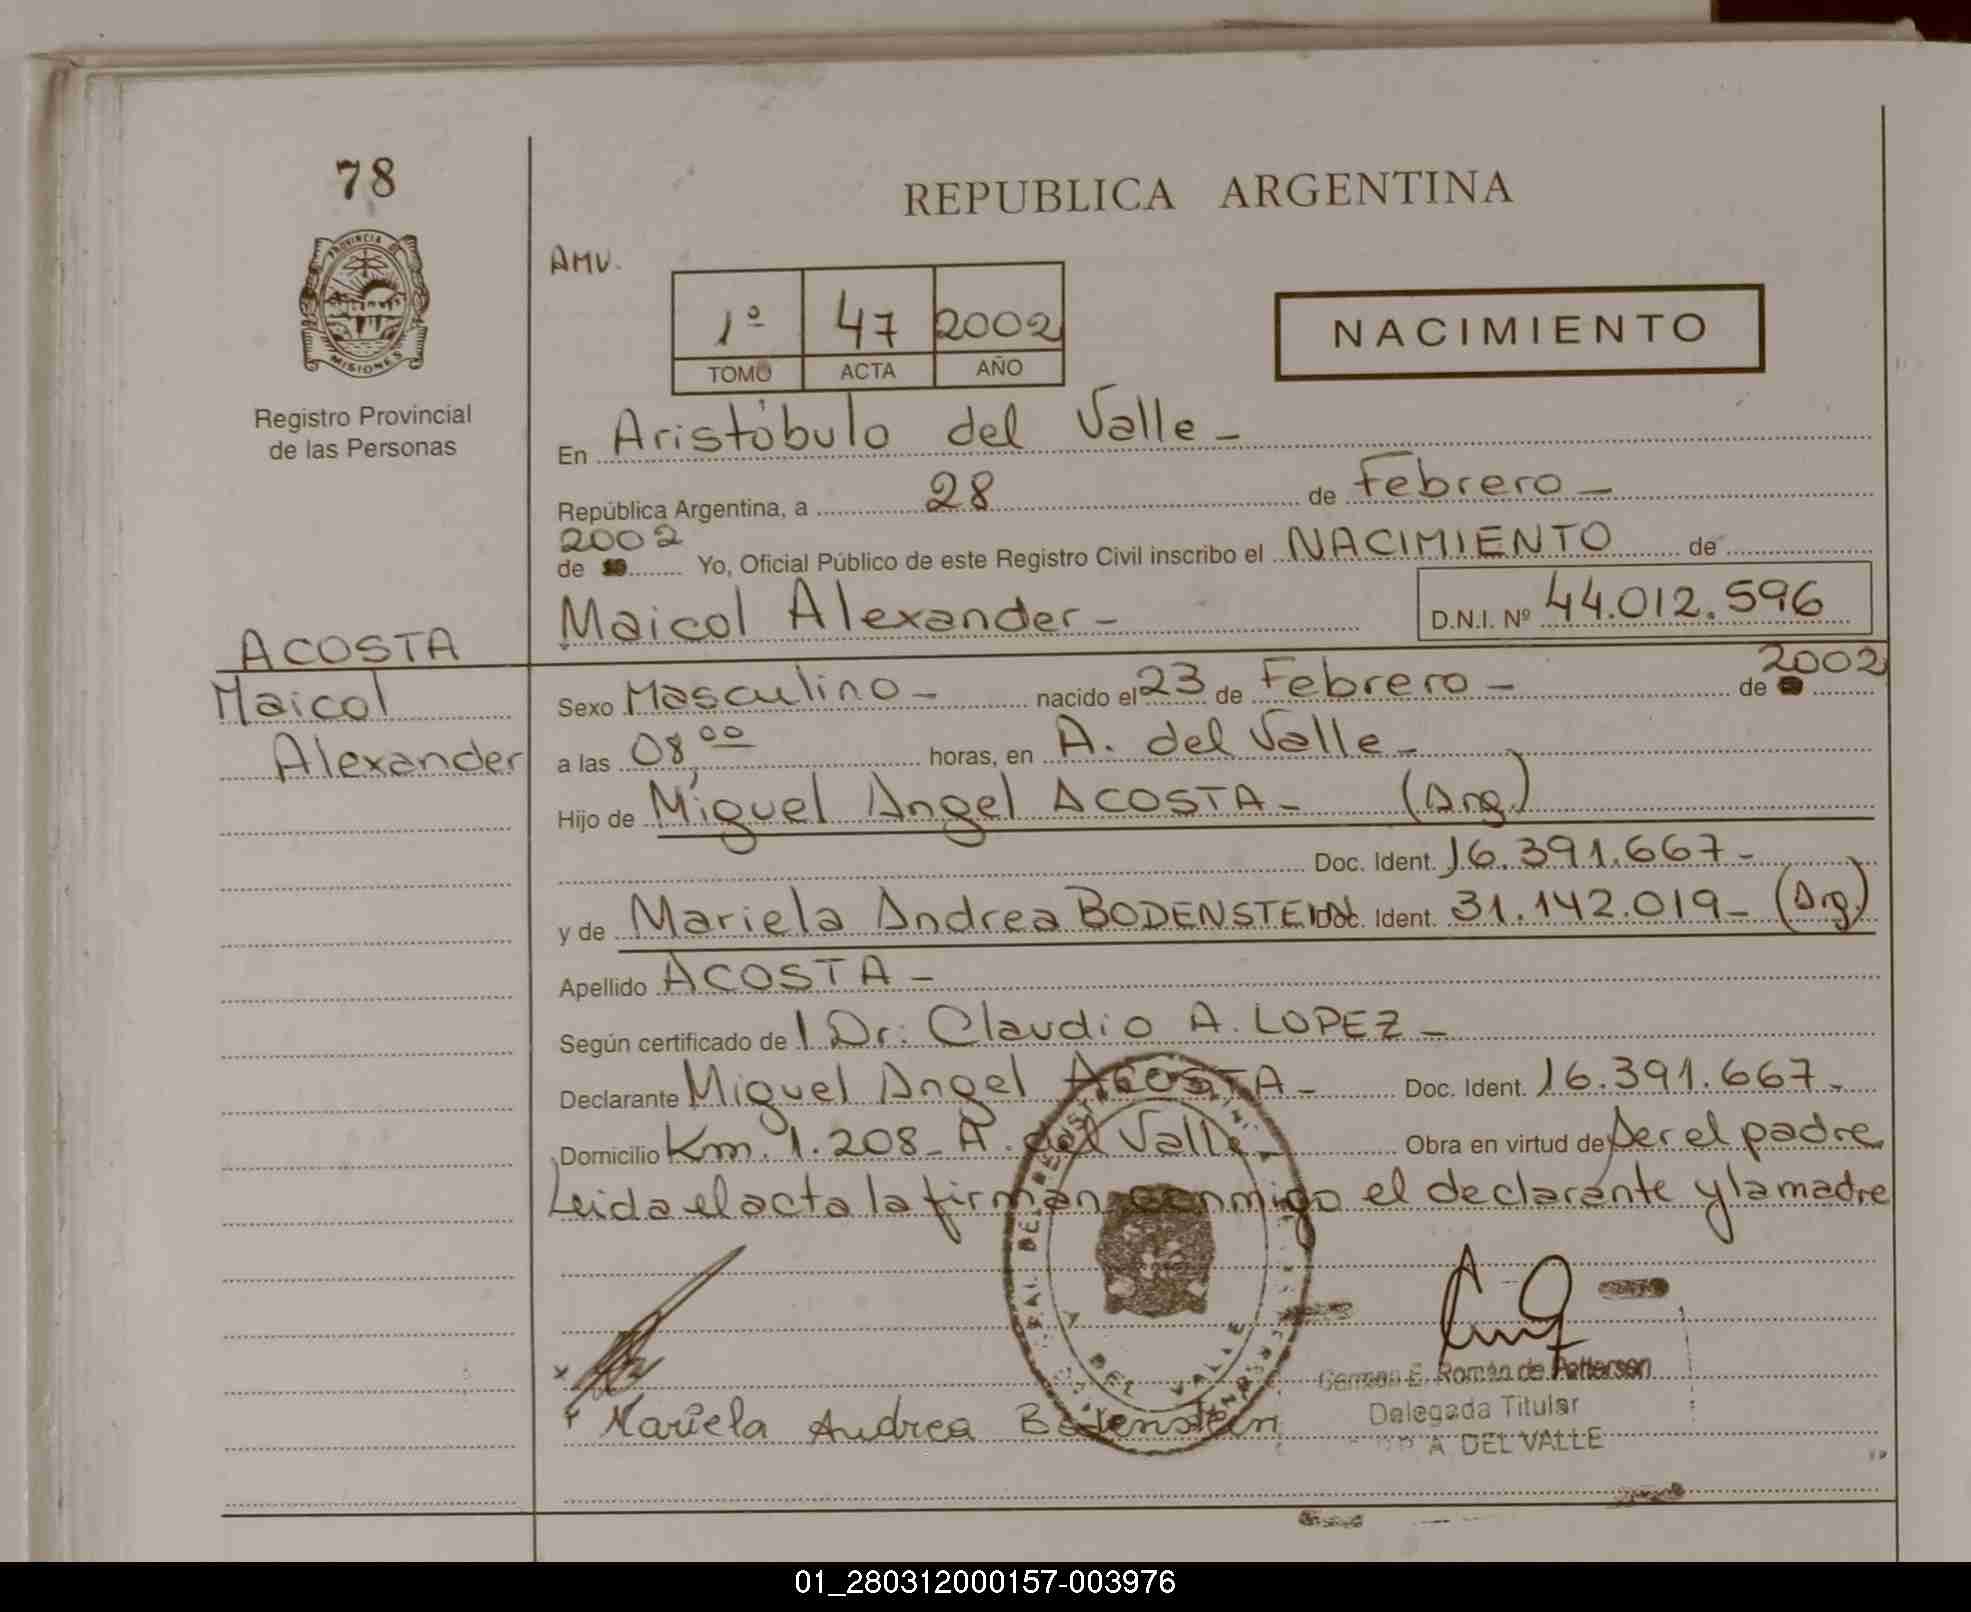 78
REPUBLICA ARGENTINA
PROVINCIA DE
MISIONES
AMV.
1º 47 2002
TOMO ACTA AÑO
NACIMIENTO
Registro Provincial
de las Personas
En Aristóbulo del Valle -
República Argentina, a 28 de Febrero -
2002
de Yo, Oficial Público de este Registro Civil inscribo el NACIMIENTO de
Maicol Alexander - D.N.I. Nº 44.012.596
ACOSTA
Maicol
Alexander
Sexo Masculino - nacido el 23 de Febrero - de 2002
a las 08,00 horas, en A. del Valle -
Hijo de Miguel Angel ACOSTA - (Arg.)
Doc. Ident. 16.391.667 -
y de Mariela Andrea BODENSTEIN Doc. Ident. 31.142.019 - (Arg.)
Apellido ACOSTA -
Según certificado de l Dr. Claudio A. LOPEZ -
Declarante Miguel Angel ACOSTA - Doc. Ident. 16.391.667 -
Domicilio Km. 1.208 - A. del Valle - Obra en virtud de ser el padre
Leida el acta la firman conmigo el declarante y la madre
DEL VALLE
x
Mariela Andrea Bodenstein
E. Román de Petterson
Delegada Titular
A DEL VALLE
01_280312000157-003976